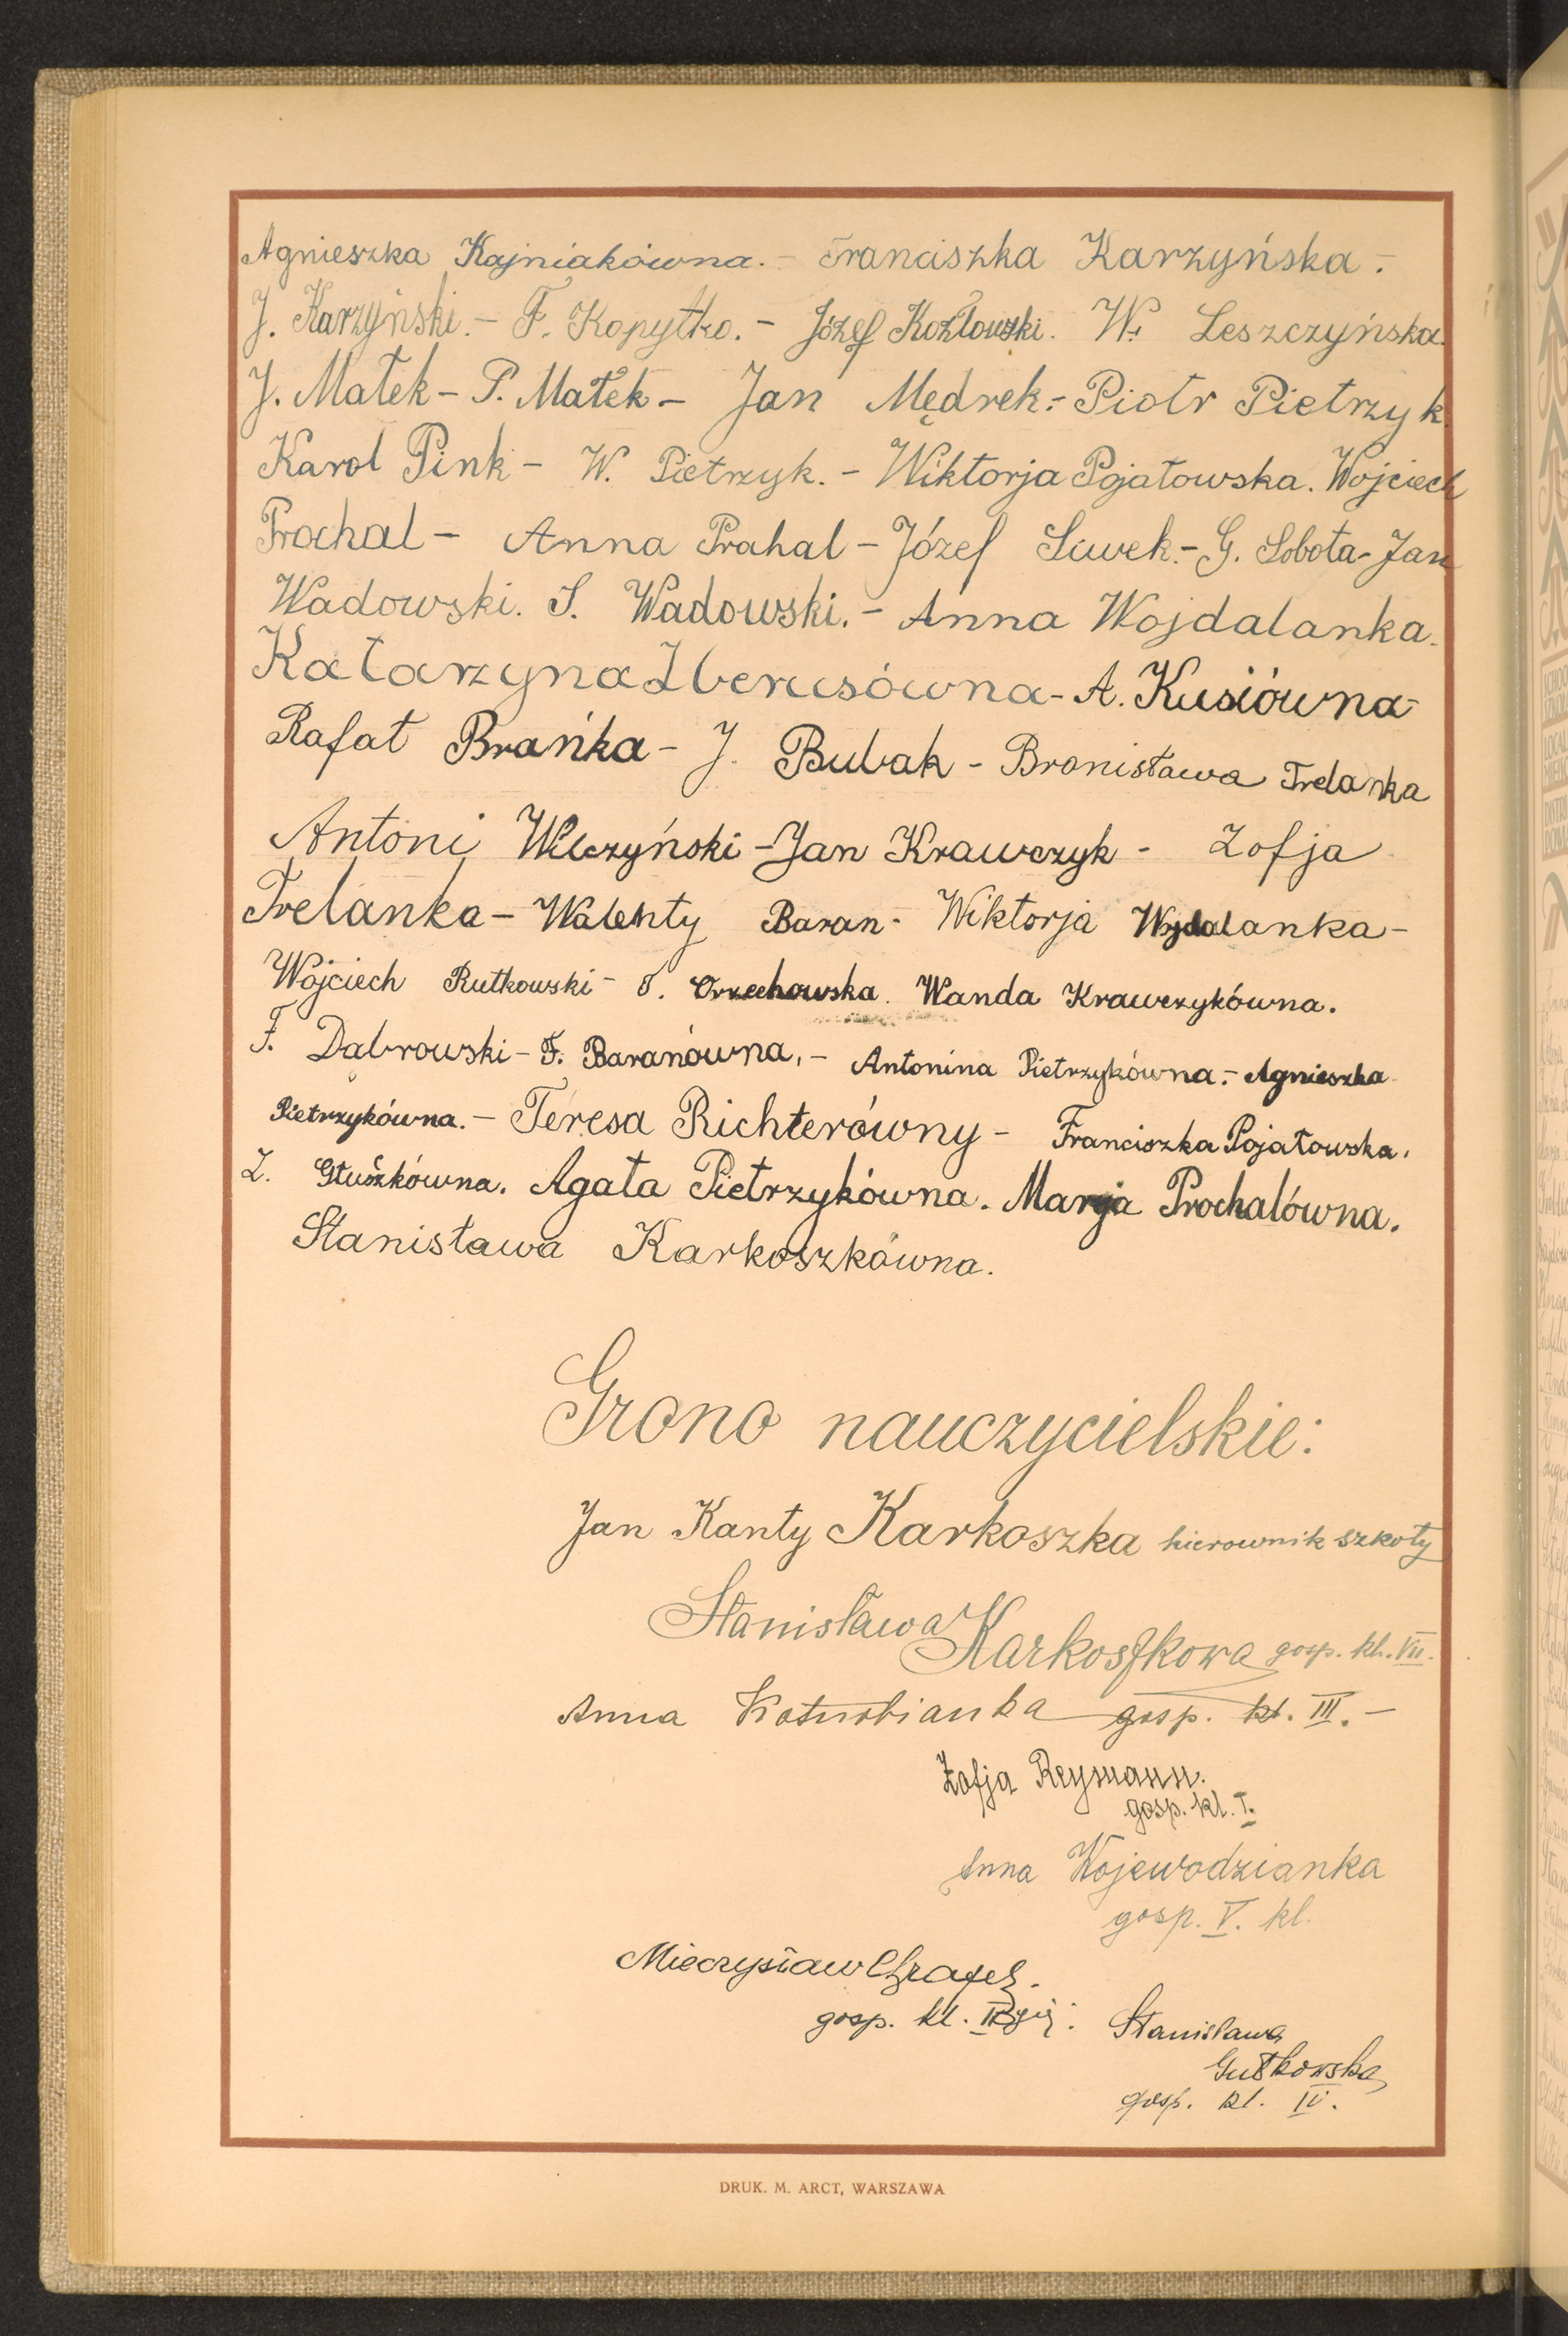 Agnieszka Kajniakówna. - Franciszka Karzyńska. -
J. Karzyński. - F. Kopytko. - Józef Kozłowski. W. Leszczyńska.
J. Małek - P. Małek - Jan Mędrek. - Piotr Pietrzyk.
Karol Pink - W. Pietrzyk. - Wiktorja Pojałowska. Wojciech
Prochal - Anna Prahal - Józef Siwek. - G. Sobota - Jan
Wadowski. S. Wadowski. - Anna Wojdalanka.
Katarzyna Zberusówna - A. Kusiówna -
Rafał Brańka - J. Bubak - Bronisława Trelanka
Antoni Wilczyński - Jan Krawczyk - Zofja
Trelanka - Walenty Baran - Wiktorja Wojdalanka -
Wojciech Rutkowski - Orzechowska. Wanda Krawczykówna.
F. Dąbrowski - F. Baranówna, - Antonina Pietrzykówna. - Agnieszka
Pietrzykówna. - Teresa Richterówny - Franciszka Pojałowska.
Z. Głuszkówna. Agata Pietrzykówna. Marja Prochalówna.
Stanisława Karkoszkówna.
Grono nauczycielskie:
Jan Kanty Karkoszka kierownik szkoły
Stanisława Karkoszkowa gosp. kl. VII.
Anna gosp. kl. III. -
Zofja Reymann.
gosp. kl. I.
Anna Wojewodzianka
gosp. V. kl.
Mieczysław
gosp. kl.
Stanisława
Gutkowska
gosp. kl. IV.
DRUK. M. ARCT, WARSZAWA